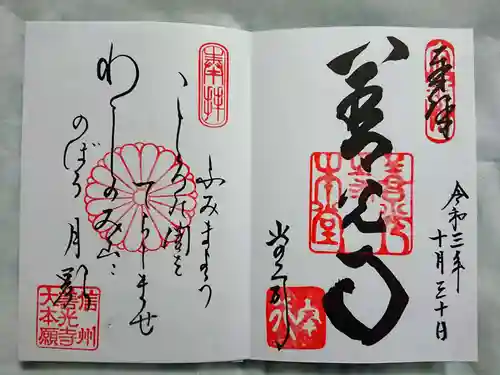 令和三年
十月三十日
善光寺
奉拝
ふみまよう
こころの闇を
てらしませ
わしのみ山に
のぼる月影
信州
善光寺
大本願